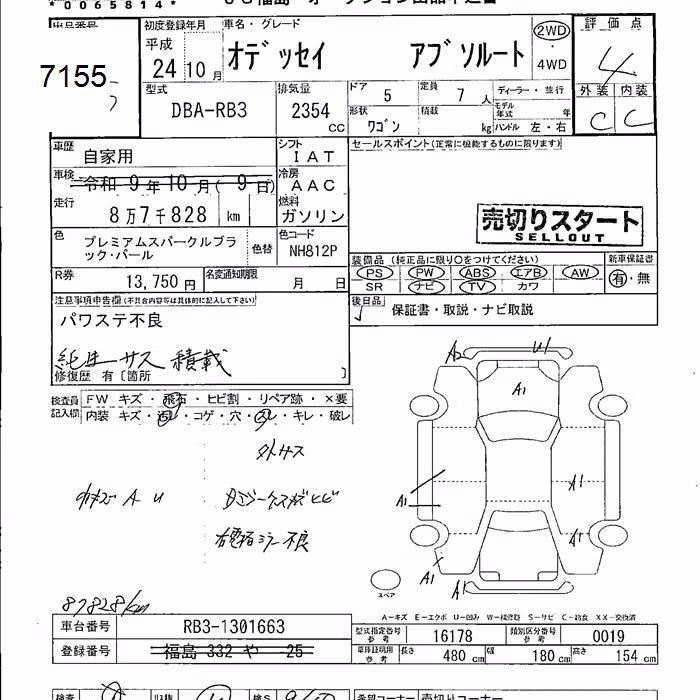 *0065814*
初度登録年月 車名・グレード 評価点
7155
平成 24 10月 オデッセイ アブソルート 2WD・4WD 4
外装 内装
C C
型式 DBA-RB3 排気量 2354 CC ドア 5 定員 7人 形状 ワゴン 積載 kg
ディーラー・並行
モデル年式 年
ハンドル 左・右
車歴 自家用 シフト IAT
セールスポイント(正常に機能するものに限ります)
車検 令和 9年 10月( 9日) 冷房 AAC
走行 8万7千828 km 燃料 ガソリン
売切りスタート
SELLOUT
色 プレミアムスパークルブラック・パール 色替 色コード NH812P
装備品 (純正品に限り○をつけてください) 新車保証書
PS PW ABS エアB AW 有・無
SR ナビ TV カワ
R券 13,750円 名変通知期限 月 日
後日品 保証書・取説・ナビ取説
注意事項申告欄(不具合内容等は具体的に記入して下さい)
パワステ不良
純生サス積載
修復歴 有〔箇所 〕
検査員記入欄 FW キズ・飛石・ヒビ割・リペア跡・×要
内装 キズ・汚レ・コゲ・穴・スレ・キレ・破レ
A2 U1
A1
外サス
A U
A1
A1
A1
A1
A1
スペア
87828km
A−キズ E−エクボ U−凹み W−補修跡 S−サビ C−腐食 XX−交換済
車台番号 RB3-1301663
型式指定番号参考 16178 類別区分番号参考 0019
登録番号 福島 332 や 25
車庫証明用参考 長さ 480cm 幅 180cm 高さ 154cm
希望コーナー 売切りコーナー